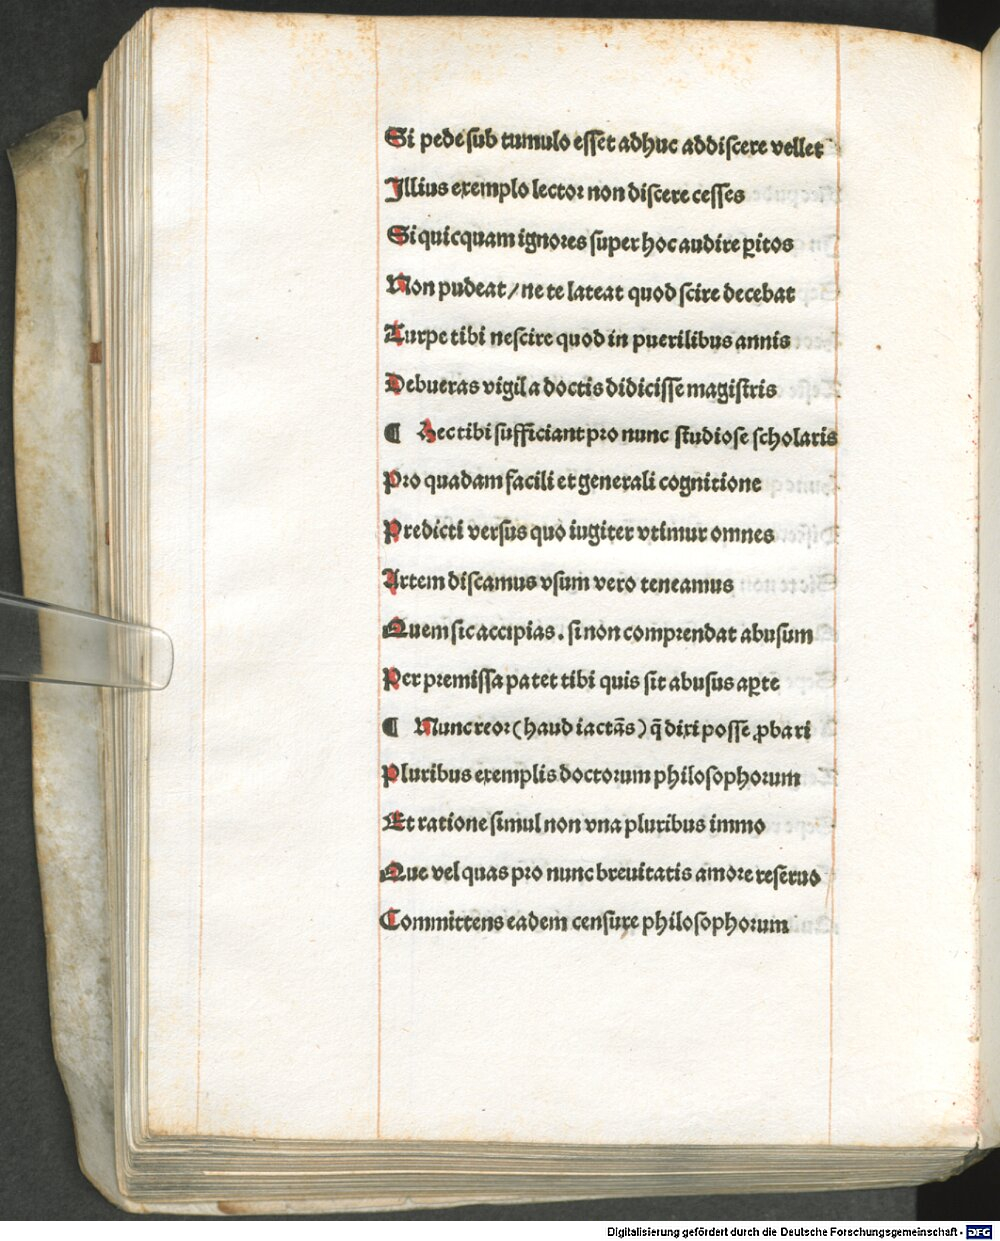 Si pede sub tumulo esset adhuc addiscere vellet
Illius exemplo lector non discere cesses
Si quicquam ignores super hoc audire ꝑitos
Non pudeat / ne te lateat quod scire decebat
Turpe tibi nescire quod in puerilibus annis
Debueras vigil a doctis didicisse magistris
¶ Hec tibi sufficiant pro nunc studiose scholaris
Pro quadam facili et generali cognitione
Predicti versus quo iugiter vtimur omnes
Artem discamus vsum vero teneamus
Quem sic accipias . si non comprendat abusum
Per premissa patet tibi quis sit abusus aꝑte
¶ Nunc reor (haud iactãs) q̃ dixi posse ꝓbari
Pluribus exemplis doctorum philosophorum
Et ratione simul non vna pluribus immo
Que vel quas pro nunc breuitatis amore reseruo
Committens eadem censure philosophorum
Digitalisierung gefördert durch die Deutsche Forschungsgemeinschaft - DFG